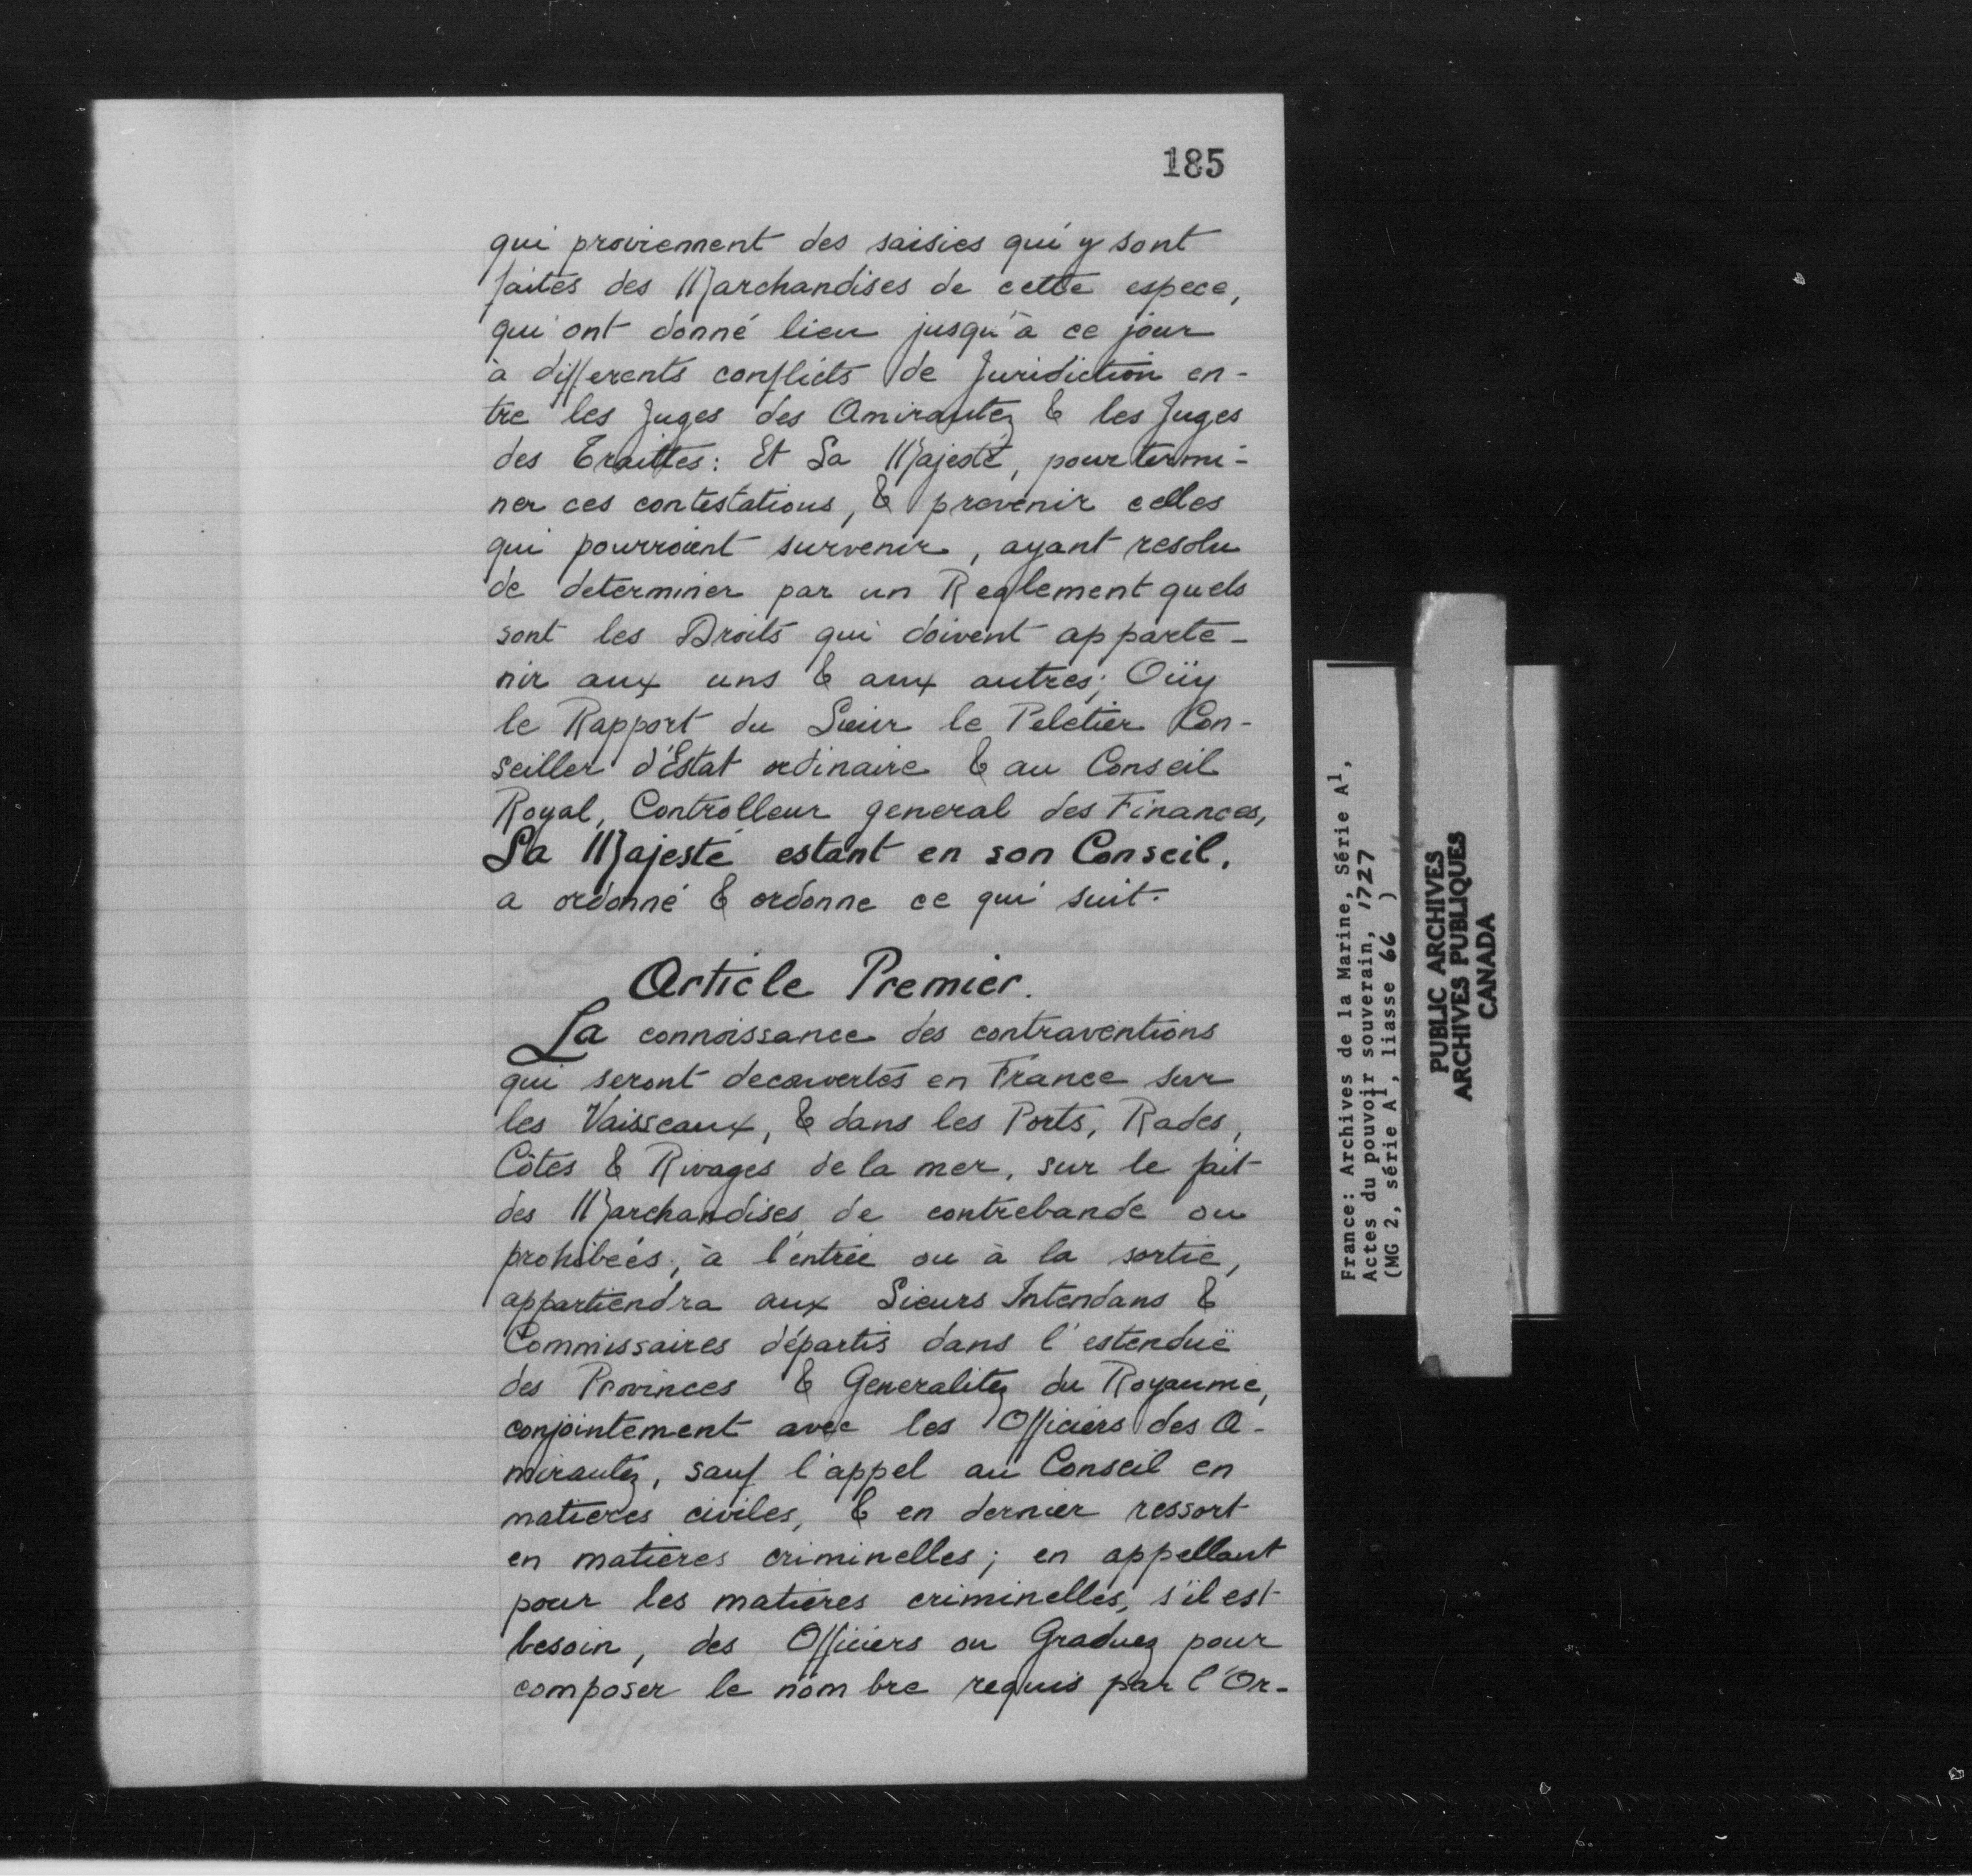 185
qui proviennent des saisies qui y sont
faites des Marchandises de cette espece,
qui ont donné lieu jusqu'à ce jour
à differents conflicts de Juridiction en-
tre les Juges des Amirautez & les Juges
des Traittes: Et Sa Majesté, pour termi-
ner ces contestations, & prevenir celles
qui pourroient survenir, ayant resolu
de determiner par un Reglement quels
sont les Droits qui doivent apparte-
nir aux uns & aux autres; Oüy
le Rapport du Sieur le Peletier Con-
seiller d'Estat ordinaire & au Conseil
Royal, Controlleur general des Finances,
Sa Majesté estant en son Conseil,
a ordonné & ordonne ce qui suit.
Article Premier.
La connoissance des contraventions
qui seront decouvertes en France sur
les Vaisseaux, & dans les Ports, Rades,
Côtes & Rivages de la mer, sur le fait
des Marchandises de contrebande ou
prohibeés, à l'entrée ou à la sortie,
appartiendra aux Sieurs Intendans &
Commissaires départis dans l'estenduë
des Provinces & Generalitez du Royaume,
conjointement avec les Officiers des A-
mirautez, sauf l'appel au Conseil en
matieres civiles, & en dernier ressort
en matieres criminelles; en appellant
pour les matieres criminelles, s'il est
besoin, des Officiers ou Graduez pour
composer le nombre requis par l'Or-
France: Archives de la Marine, Série A1,
Actes du pouvoir souverain, 1727
(MG 2, série A1, liasse 66 )
PUBLIC ARCHIVES
ARCHIVES PUBLIQUES
CANADA